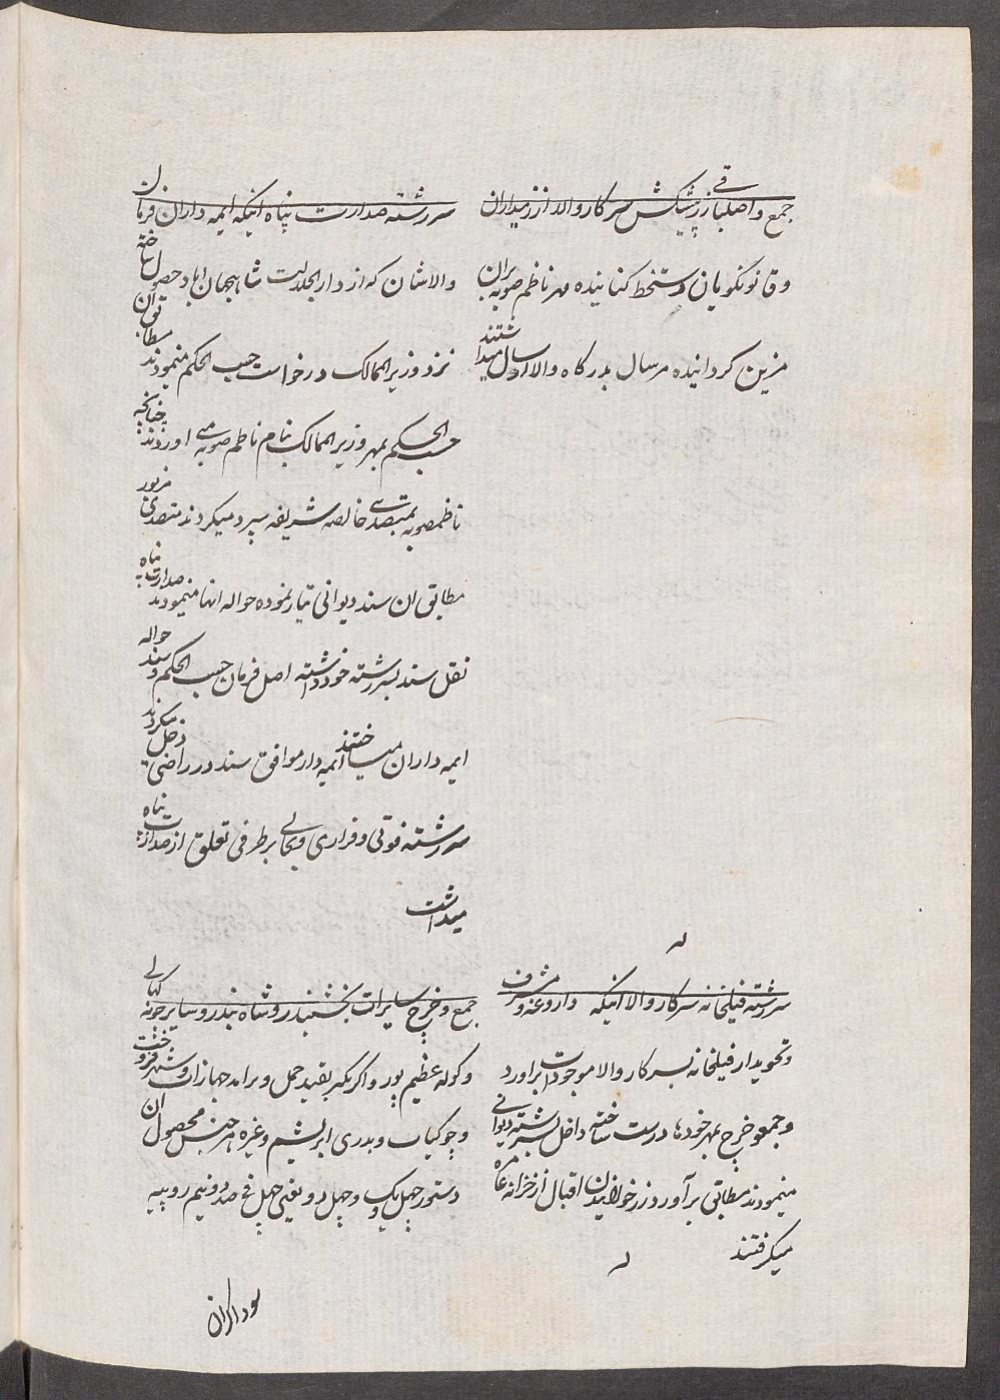 جمع واصلباقی زر پیشکش سرکار والا از زمیداران
و قانونکویان دستخط کنانیده مهر ناظم صوبه بران
مزین کردانیده مرسال بدرکاه والا ارسال میداشتند
سررشته صدارت پناه اینکه ایمه داران فرمان
والاشان که از دارالخلافت شاهجهان اباد حصول ساخته
نزد وزیر الممالک درخواست حسب الحکم مینمودند مطابق ان
حسب الحکم بمهر وزیر الممالک بنام ناظم صوبه می اوردند چنانچه
ناظم صوبه بمتصدی خالصه شریفه سپرد میکردند متصدی مزبور
مطابق ان سند دیوانی تیار نموده حواله انها مینمودند صدارت پناه
نقل سند بسررشته خود داشته اصل فرمان حسب الحکم و سند حواله
ایمه داران میساختند ایمه دار موافق سند در راضی دخل میکردند
سررشته فوتی و فراری و بحالی برطرفی تعلق از صدارت پناه
میداشت
سررشته فیلخانه سرکار والا اینکه داروغه و مشرف
و تحویدار فیلخانه سرکار والا موجودات براورد
و جمعوخرچ بمهر خودها درست ساخته داخل سررشته دیوانی
مینمودند مطابق برآورد زر خوراک فیلان اقبال از خزانه عامره
میکرفتند
جمع و خرچ سایرات بخشبندر و شاه بندر و سایر چونه کهالی
و کوله عظیم پور و اکرنکر بقید حمل و برامد جهازات و شهر فروخت
و چوکیات و بدری ابریشم و غیره هر جنس محصول ان
دستور چهل یک و چهل دو یعنی چهل فی صد دو نیم روپیه
سوداکران